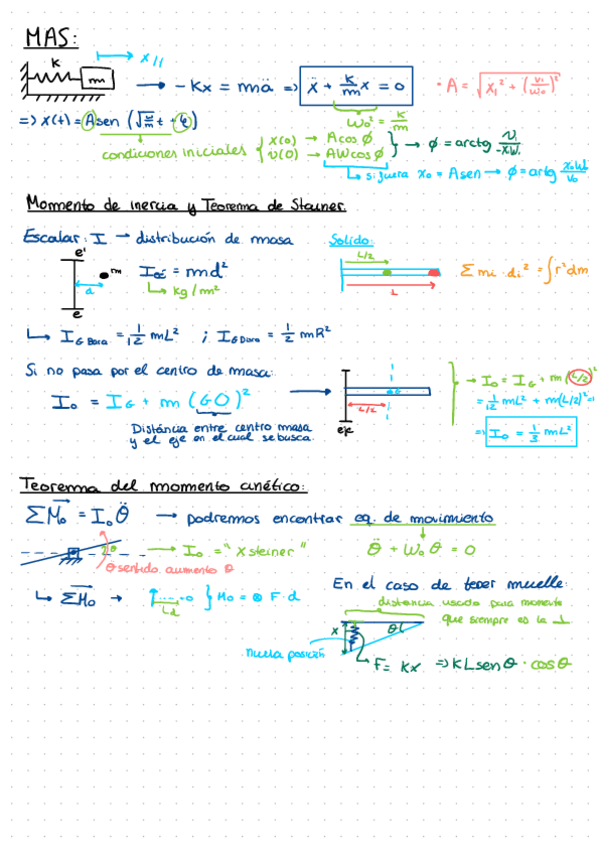 MAS:
K
m
x //
→ -Kx = mä ⇒ ẍ + k/m x = 0
· A = √(x₁² + (v₁/w₀)²)
w₀² = k/m
=> x(t) = A sen (√(k/m) t + φ)
condiciones iniciales { x(0) → A cos ϕ
v(0) → AW cos ϕ } → ϕ = arctg v₁/-xw₁
↳ si fuera x₀ = A sen → ϕ = artg x₀w₀/v₀
Momento de inercia y Teorema de Stainer.
Escalar: I → distribución de masa
Solido:
e'
m
d
e
I = md²
↳ kg/m²
L/2
L
Σ mi · di² = ∫r² dm
↳ I G Bara = 1/12 mL² ; I G Disco = 1/2 mR²
Si no pasa por el centro de masa:
I₀ = I_G + m (GO)²
Distáncia entre centro masa
y el eje en el cual se busca.
G
L/2
eje
→ I₀ = I_G + m (L/2)²
= 1/12 mL² + m(L/2)² =
=> I₀ = 1/3 mL²
Teorema del momento cinético:
ΣM₀ = I₀ θ̈ → podremos encontrar eq. de movimiento
θ
→ I₀ = "x steiner"
θ̈ + W₀ θ = 0
θ sentido aumento θ
↳ ΣM₀ →
Ld
} M₀ = ⊗ F · d
En el caso de tener muelle:
distancia usada para momento
que siempre es la ⊥
x
θ
L
nueva posición
↳ F = Kx => K L sen θ · cos θ